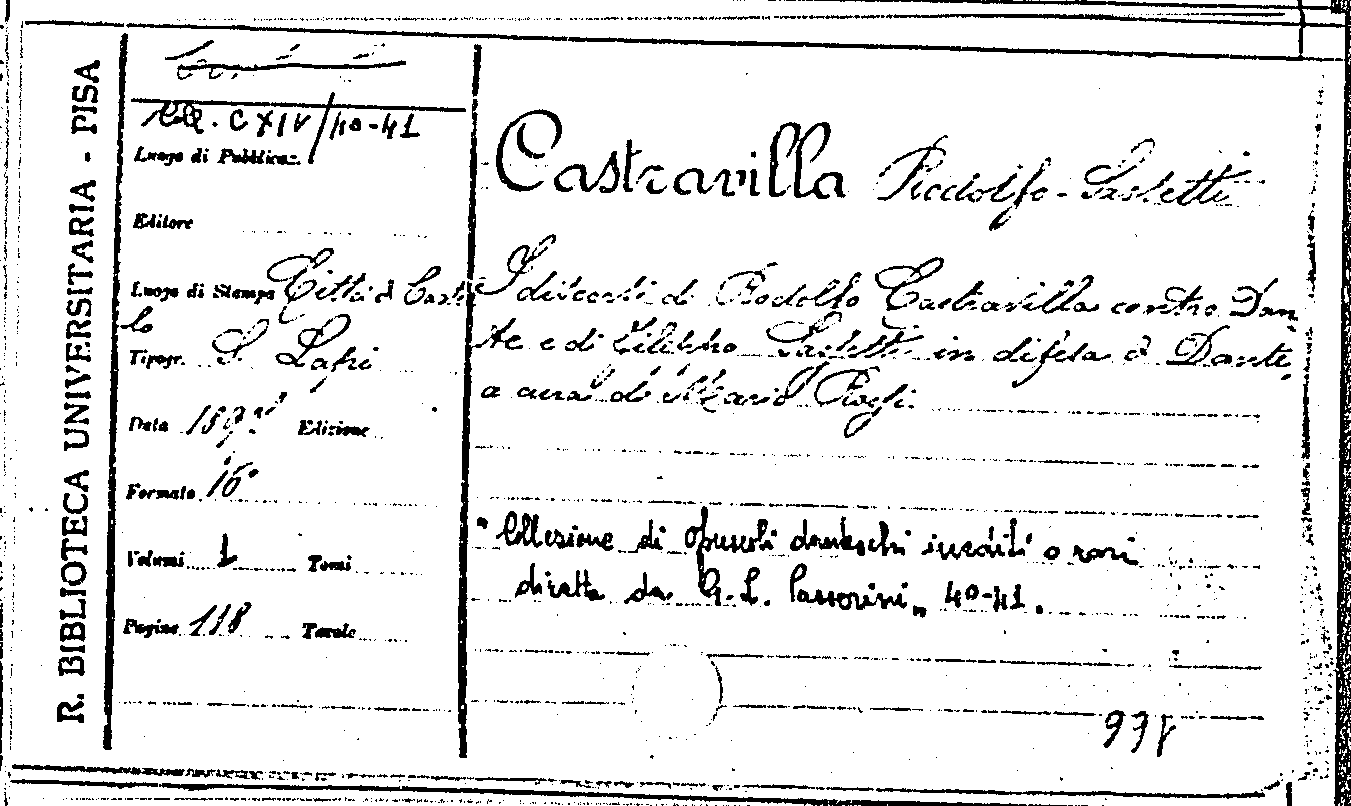 R. BIBLIOTECA UNIVERSITARIA - PISA
Coll. CXIV/40-41
Luogo di Pubblicaz.
Editore
Luogo di Stampa Città d Castel
lo
Tipogr. S. Lapi
Data 1897 Edizione
Formato 16°
Volumi 1 Tomi
Pagine 118 Tavole
Castravilla Rodolfo - Sassetti
I discorsi di Rodolfo Castravilla contro Dan-
te e di Filippo Sassetti in difesa d Dante,
a cura di Mario Rossi.
"Collezione di opuscoli danteschi inediti o rari
diretta da G. L. Passerini„ 40-41.